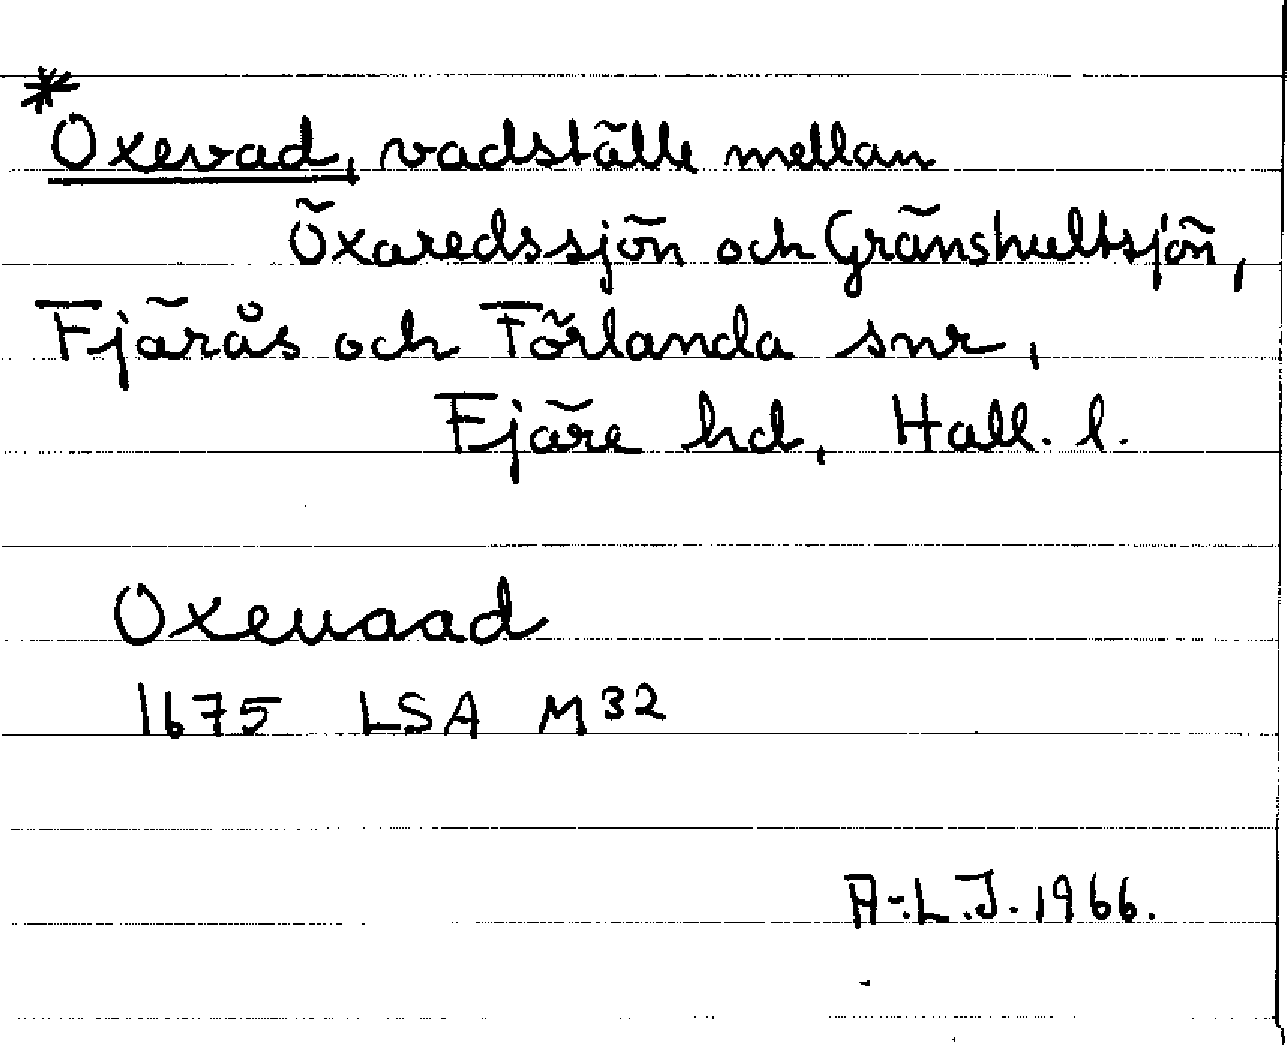 *
Oxevad, vadställe mellan
Öxaredssjön och Gränshultsjön,
Fjärås och Förlanda snr,
Fjäre hd, Hall. l.
Oxeuaad
1675 LSA M32
A-.L.J. 1966.